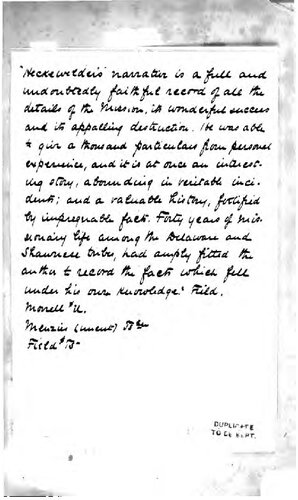 "Heckewelder's narrative is a full and
undoubtedly faithful record of all the
details of the Mission, its wonderful success
and its appalling destruction. He was able
to give a thousand particulars from personal
experience, and it is at once an interest-
ing story, abounding in veritable inci-
dents; and a valuable history, fortified
by impregnable facts. Forty years of mis-
sionary life among the Delaware and
Shawnese tribes, had amply fitted the
author to record the facts which fell
under his own knowledge." Field.
Morrell $
Menzies (uncut)
Field $
DUPLICATE
TO BE KEPT.